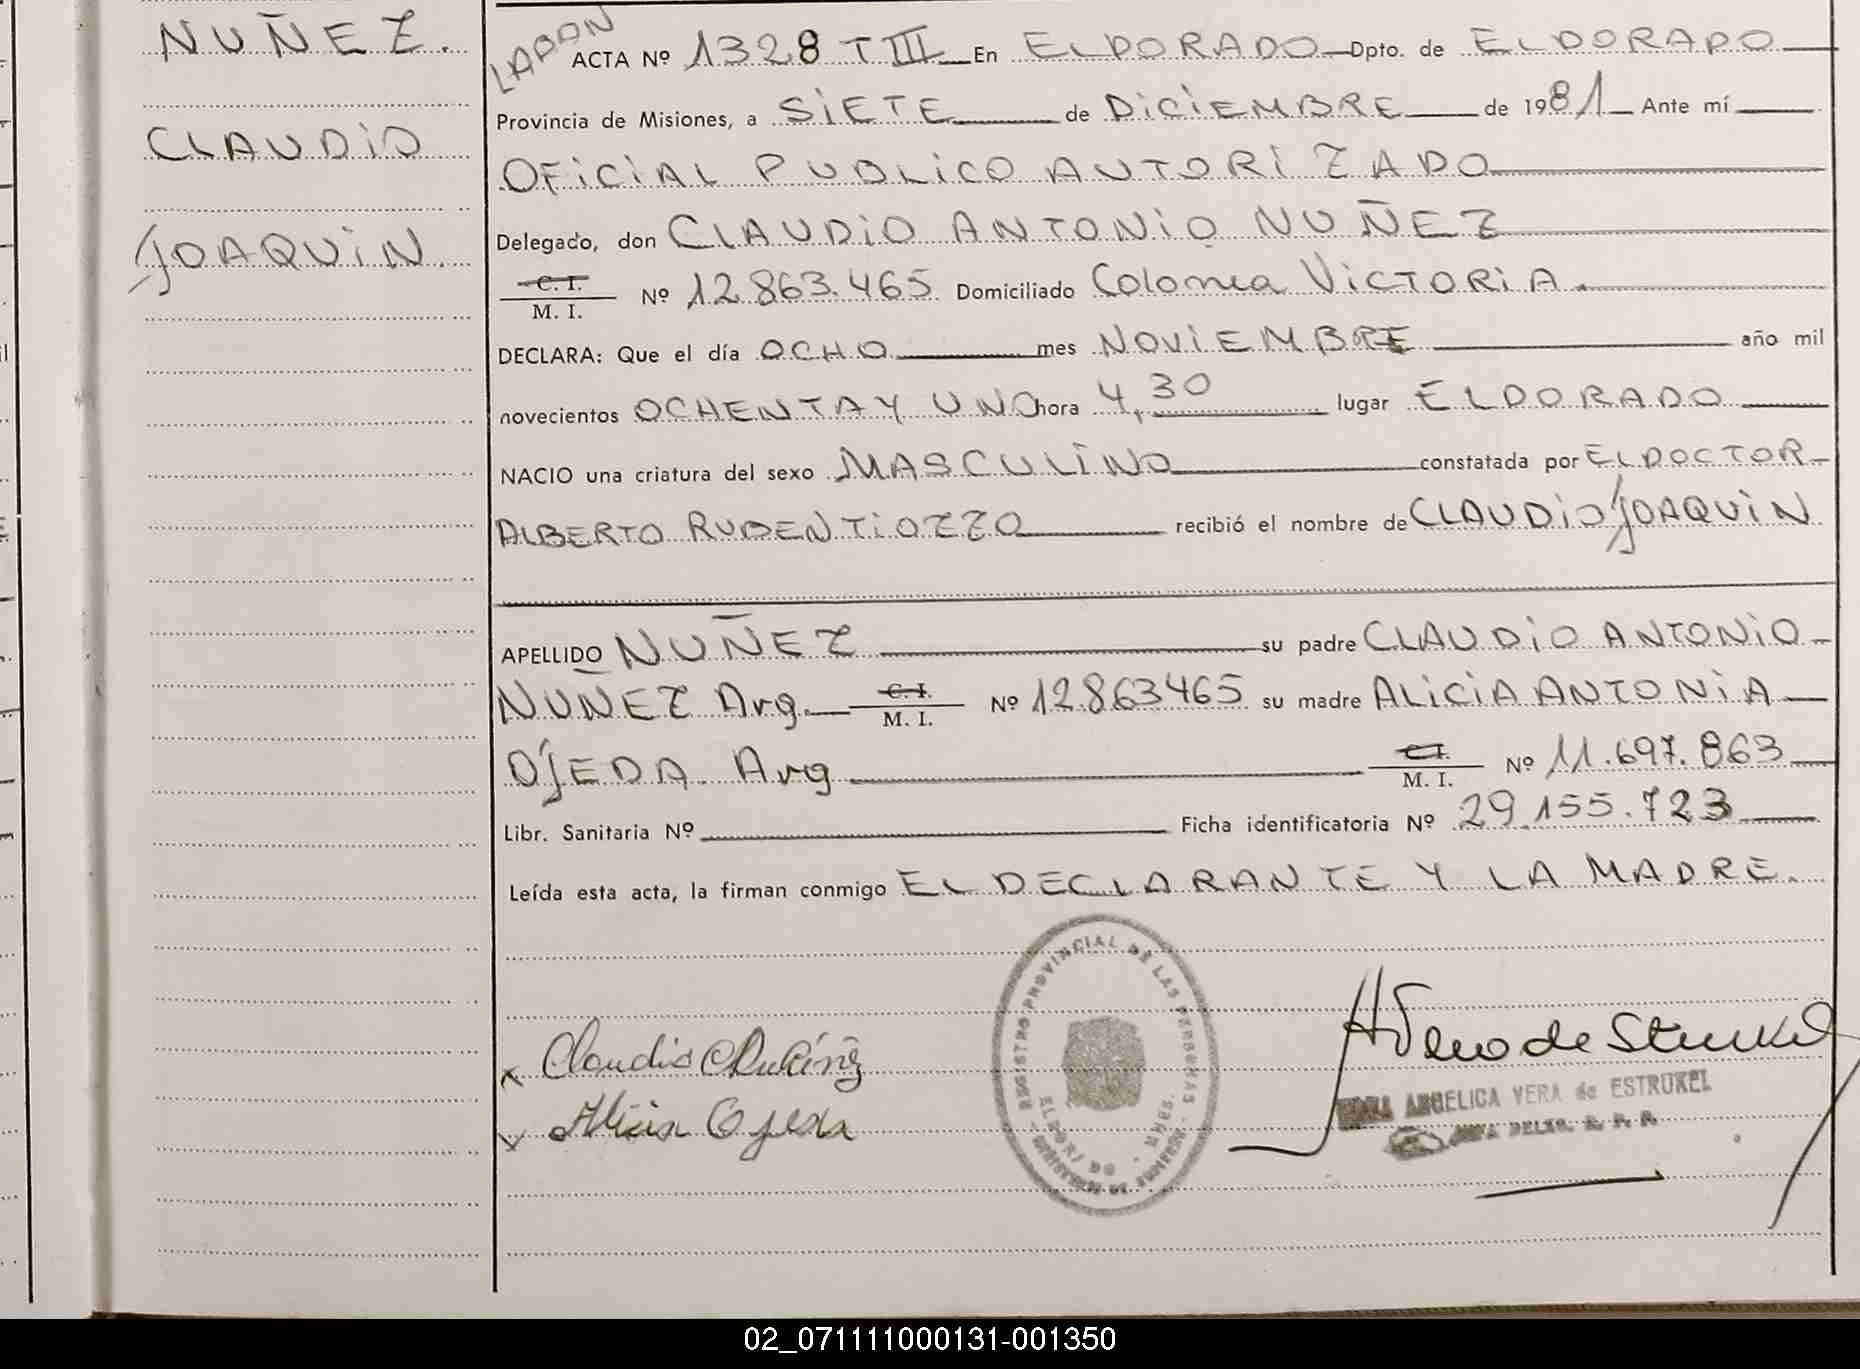 NUÑEZ.
CLAUDIO
JOAQUIN.
LABON
ACTA Nº 1328 T III En ELDORADO Dpto. de ELDORADO
Provincia de Misiones, a SIETE de DICIEMBRE de 1981 Ante mí
OFICIAL PUBLICO AUTORIZADO
Delegado, don CLAUDIO ANTONIO NUÑEZ
C. I.
M. I. Nº 12.863.465 Domiciliado Colonia VICTORIA.
DECLARA: Que el día OCHO mes NOVIEMBRE año mil
novecientos OCHENTA Y UNO hora 4,30 lugar ELDORADO
NACIO una criatura del sexo MASCULINO constatada por EL DOCTOR
ALBERTO RUBEN TIOZZO recibió el nombre de CLAUDIO JOAQUIN
APELLIDO NUÑEZ su padre CLAUDIO ANTONIO
NUÑEZ Arg. C. I. M. I. Nº 12863465 su madre ALICIA ANTONIA
OJEDA Arg. C. I. M. I. Nº 11.697.863
Libr. Sanitaria Nº Ficha identificatoria Nº 29.155.723
Leída esta acta, la firman conmigo EL DECLARANTE Y LA MADRE.
REGISTRO PROVINCIAL DE LAS PERSONAS
ELDORADO
Claudio
Alicia Ojeda
ANGELICA VERA de ESTRUKEL
02_071111000131-001350